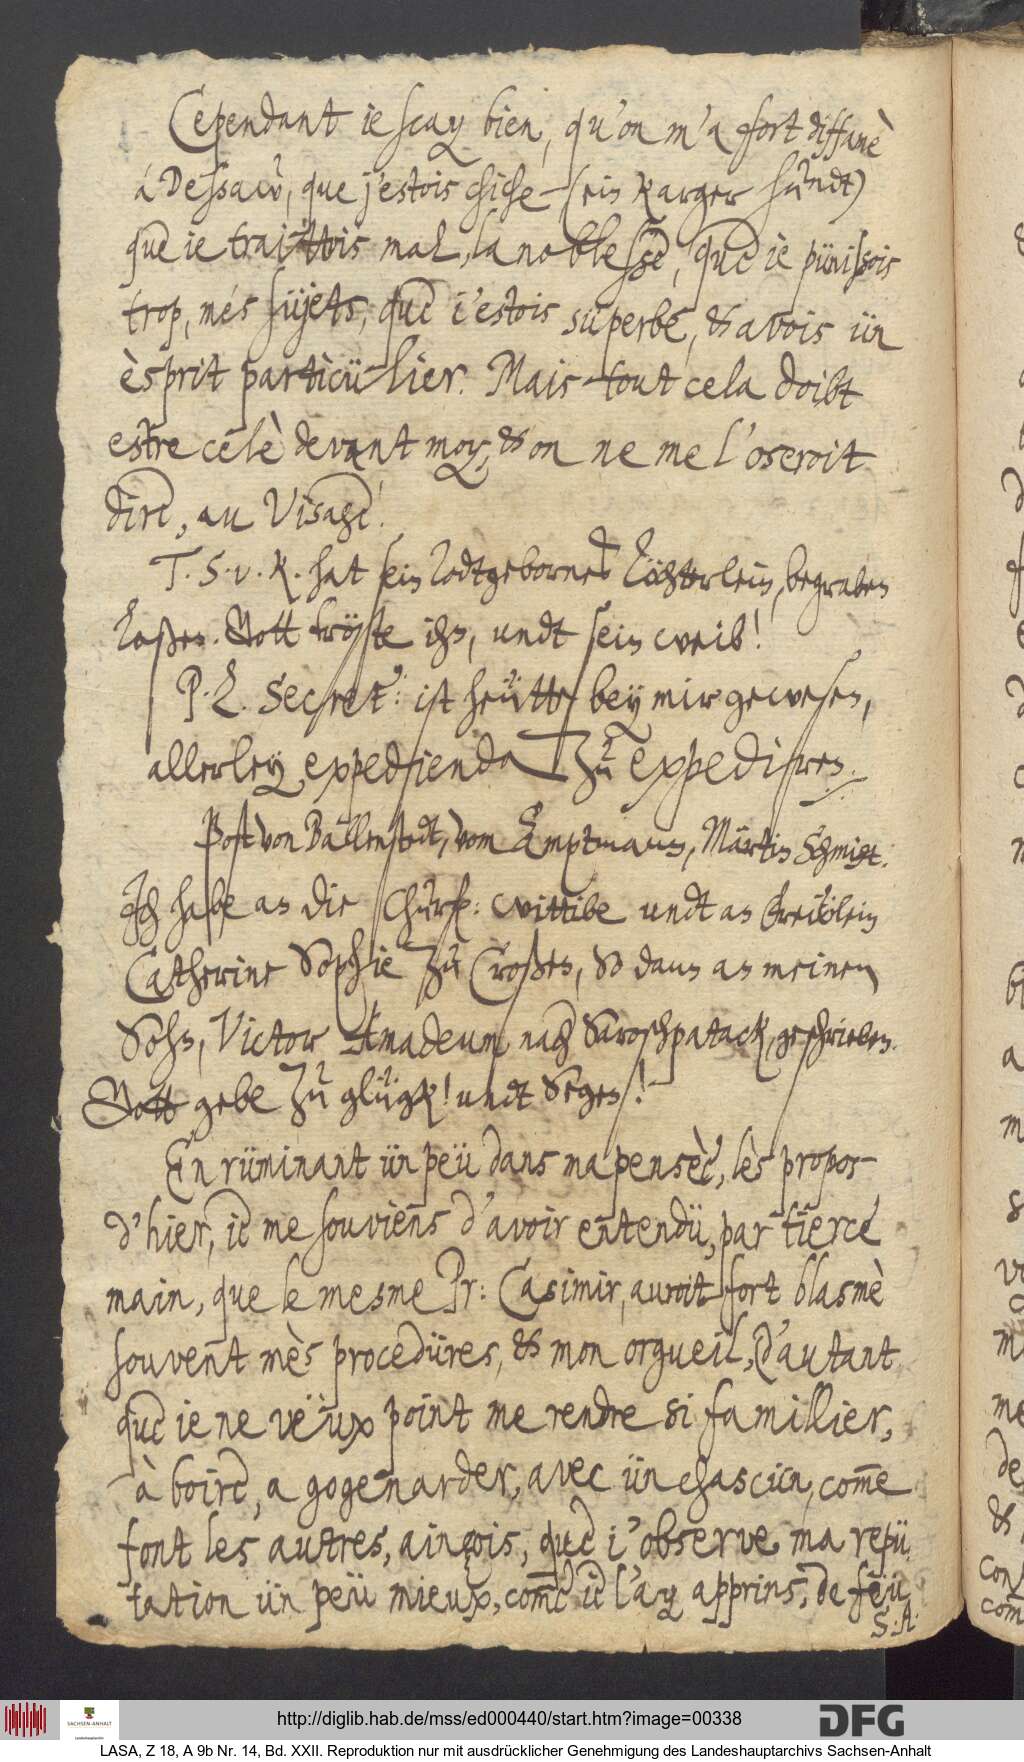 Cependant ie scay bien, qu'on m'a fort diffamè
á Dessaw, que j'estois chiche (ein karger hundt)
que ie traittois mal, la noblesse, que ie pünissois
trop, més süjets, que i'estois süperbe, & avois ün
èsprit particülier. Mais tout cela doibt
estre célè devant moy, & on ne me l'oseroit
dire, au Visage!
T. S. v. K. hat sein todtgebornes töchterlein, begraben
laßen. Gott tröste ihn, undt sein weib!
P. L. Secret: ist heütte bey mir gewesen,
allerley expedienda zu expediiren.
Post von Ballenstedt, vom Amptmann, Martin Schmidt.
Ich habe an die Churf: wittibe undt an Freẅlein
Catherine Sophie zu Croßen, so dann an meinen
Sohn, Victor Amadeum nach Saroschpatack, geschrieben.
Gott gebe zu glügk! undt Segen!
En rüminant ün peü dans ma pensèe, lès propos
d'hier, ie me souviens d'avoir entendü, par tierce
main, que le mesme Pr: Casimir, auroit fort blasmè
souvent mès procedüres, & mon orgueil, d'autant
que ie ne veüx point me rendre si famillier,
à boire, a gogenarder, avec ün chascün, come͞
font les autres, ainçois, que i'observe ma repü-
tation ün peü mieux, com͞e ie l'ay apprins, de feü
S: A:
http://diglib.hab.de/mss/ed000440/start.htm?image=00338
DFG
SACHSEN-ANHALT
Landeshauptarchiv
LASA, Z 18, A 9b Nr. 14, Bd. XXII. Reproduktion nur mit ausdrücklicher Genehmigung des Landeshauptarchivs Sachsen-Anhalt